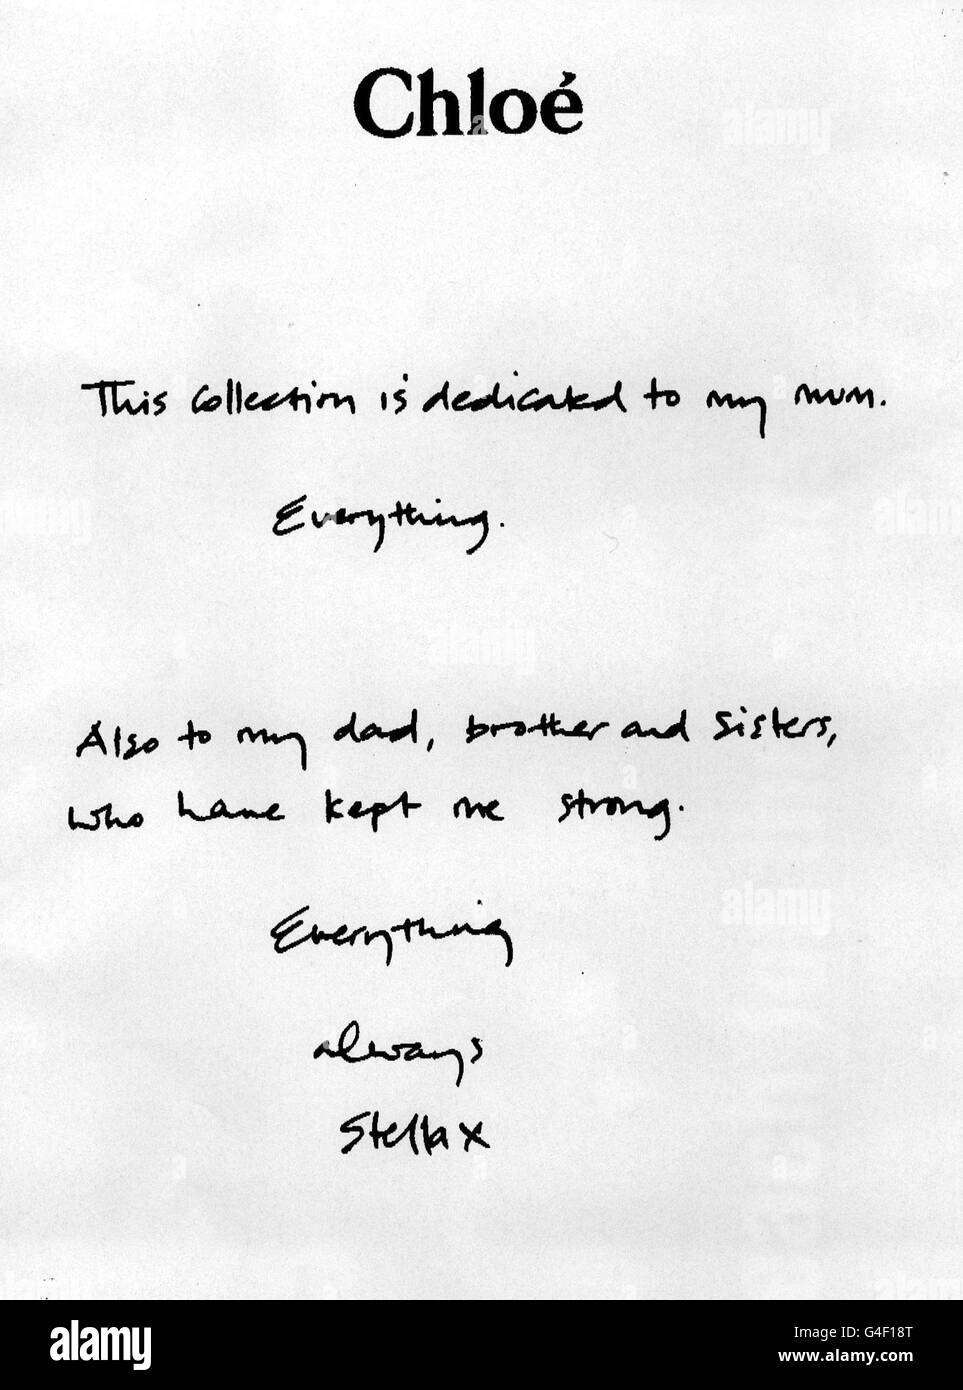 Chloé
This collection is dedicated to my mum.
Everything.
Also to my dad, brother and sisters,
who have kept me strong.
Everything
always
Stella x
alamy
Image ID: G4F18T
www.alamy.com